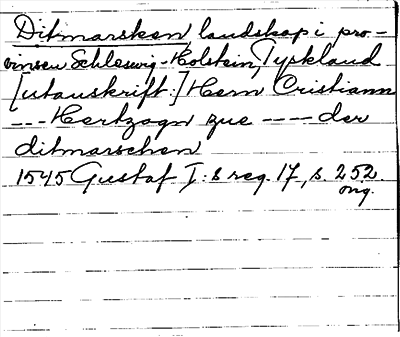 Ditmarsken landskap i pro-
vinsen Schleswig-Holstein, Tyskland
[utanskrift:] Hern Cristiann
--- Hertzogn zue ---- der
ditmarschen
1545 Gustaf I:s reg. 17, s. 252.
org.